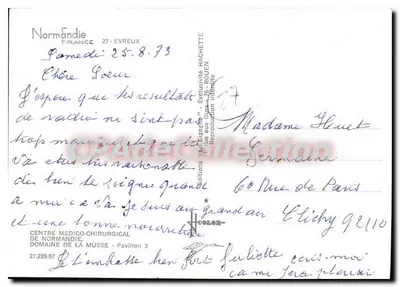 Normandie
FRANCE 27 - EVREUX
Samedi 25.8.73
Chère Soeur
J'espère que tes resultats
de radio ne sont pas
trop mauvais et que
Va être très
de bien te soigner quand
a moi ça va je suis au grand air
et une bonne nourriture
Je t'embrasse bien fort Juliette écris-moi
ça me fera plaisir
CENTRE MEDICO-CHIRURGICAL
DE NORMANDIE,
DOMAINE DE LA MUSSE - Pavillon 3
27.229.97
Exclusivité HACHETTE
ROUEN
Reproduction interdite
Madame Huet
Germaine
60 Rue de Paris
Clichy 92110